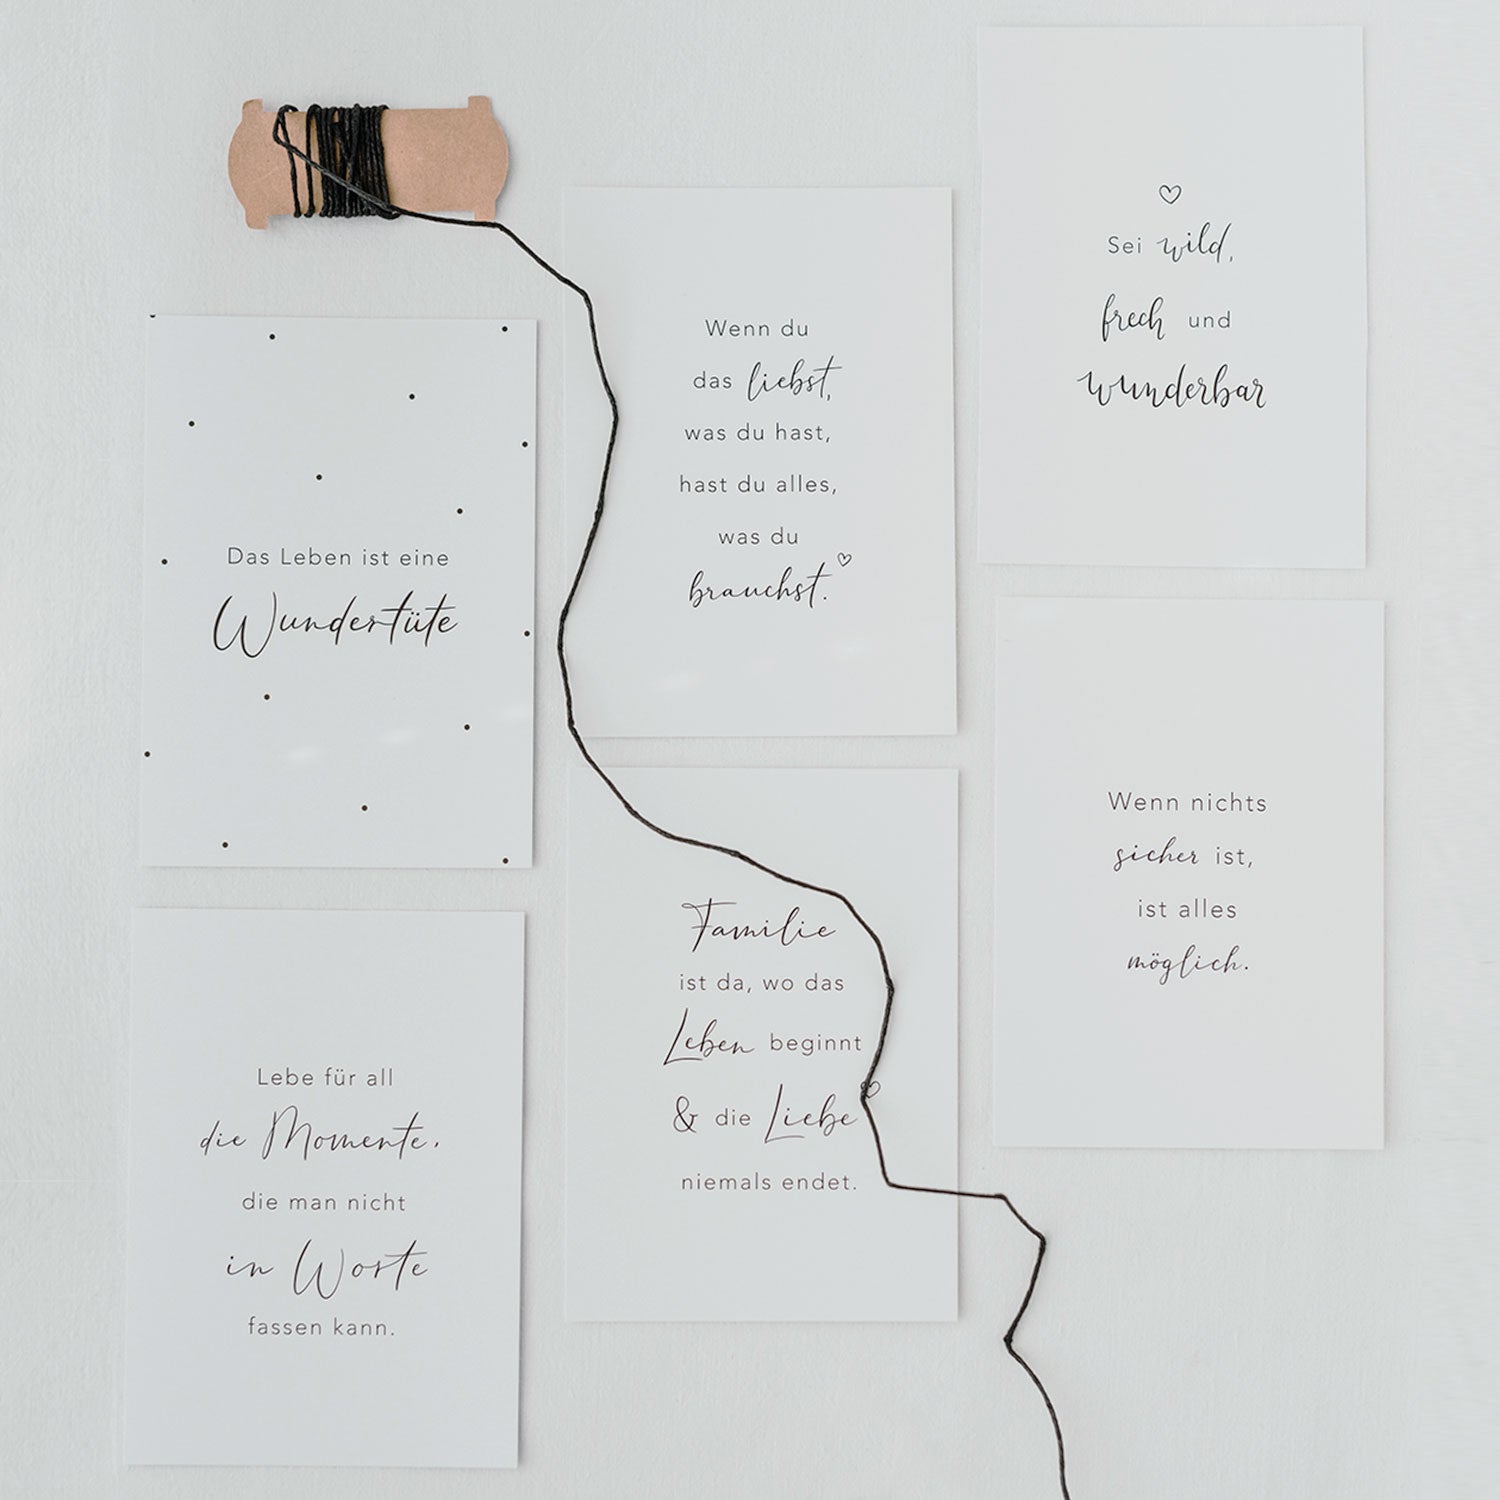 Das Leben ist eine
Wundertüte
Lebe für all
die Momente,
die man nicht
in Worte
fassen kann.
Wenn du
das liebst,
was du hast,
hast du alles,
was du
brauchst.
Familie
ist da, wo das
Leben beginnt
& die Liebe
niemals endet.
Sei wild,
frech und
wunderbar
Wenn nichts
sicher ist,
ist alles
möglich.